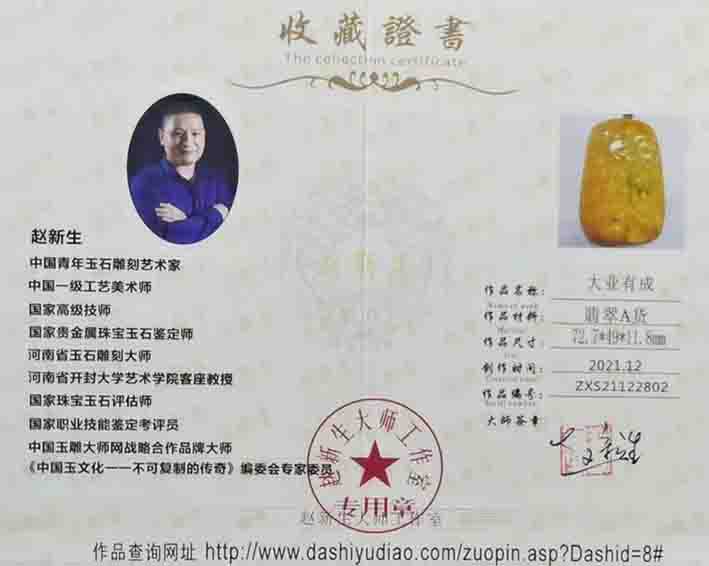 收藏證書
The collection certificate
赵新生
中国青年玉石雕刻艺术家
中国一级工艺美术师
国家高级技师
国家贵金属珠宝玉石鉴定师
河南省玉石雕刻大师
河南省开封大学艺术学院客座教授
国家珠宝玉石评估师
国家职业技能鉴定考评员
中国玉雕大师网战略合作品牌大师
《中国玉文化——不可复制的传奇》编委会专家委员
作品名称: 大业有成
作品材料: 翡翠A货
作品尺寸: 72.7*49*11.8mm
创作时间: 2021.12
作品编号: ZXS21122802
大师签章:
赵新生大师工作室
专用章
赵新生大师工作室
作品查询网址 http://www.dashiyudiao.com/zuopin.asp?Dashid=8#